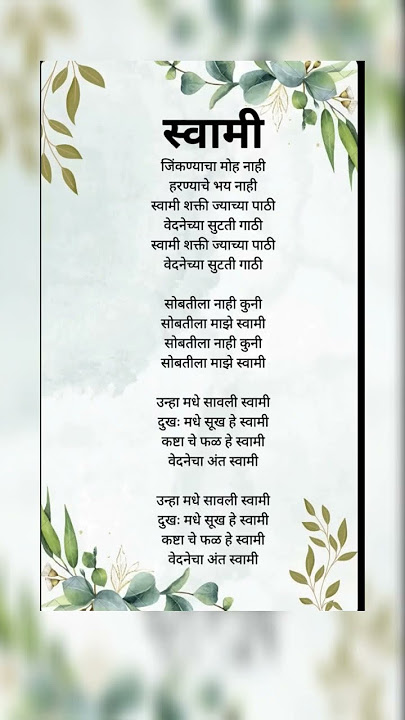 स्वामी
जिंकण्याचा मोह नाही
हरण्याचे भय नाही
स्वामी शक्ती ज्याच्या पाठी
वेदनेच्या सुटती गाठी
स्वामी शक्ती ज्याच्या पाठी
वेदनेच्या सुटती गाठी
सोबतीला नाही कुनी
सोबतीला माझे स्वामी
सोबतीला नाही कुनी
सोबतीला माझे स्वामी
उन्हा मधे सावली स्वामी
दुखः मधे सूख हे स्वामी
कष्टा चे फळ हे स्वामी
वेदनेचा अंत स्वामी
उन्हा मधे सावली स्वामी
दुखः मधे सूख हे स्वामी
कष्टा चे फळ हे स्वामी
वेदनेचा अंत स्वामी